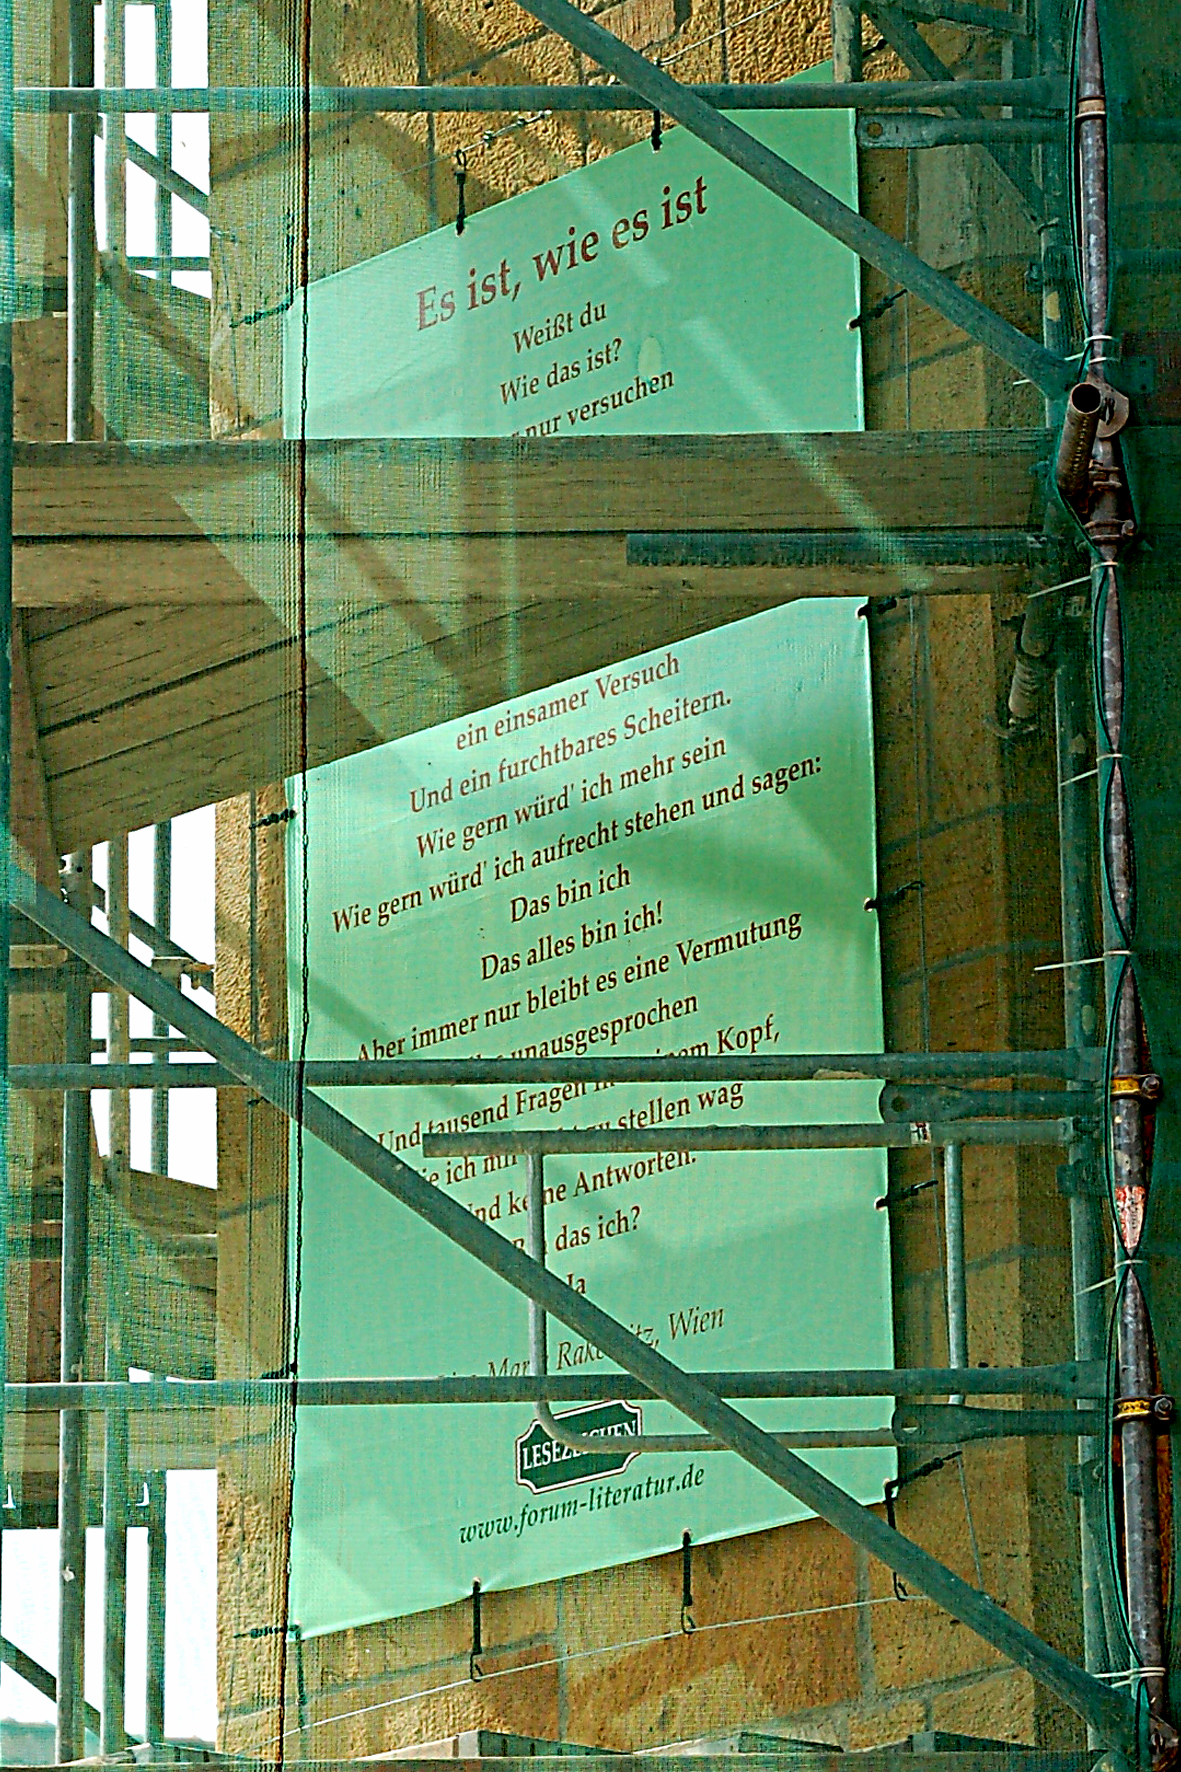 Es ist, wie es ist
Weißt du
Wie das ist?
nur versuchen
ein einsamer Versuch
Und ein furchtbares Scheitern.
Wie gern würd' ich mehr sein
Wie gern würd' ich aufrecht stehen und sagen:
Das bin ich
Das alles bin ich!
Aber immer nur bleibt es eine Vermutung
unausgesprochen
Und tausend Fragen in meinem Kopf,
ich mir stellen wag
Und keine Antworten.
das ich?
Ja
Wien
LESEZEICHEN
www.forum-literatur.de